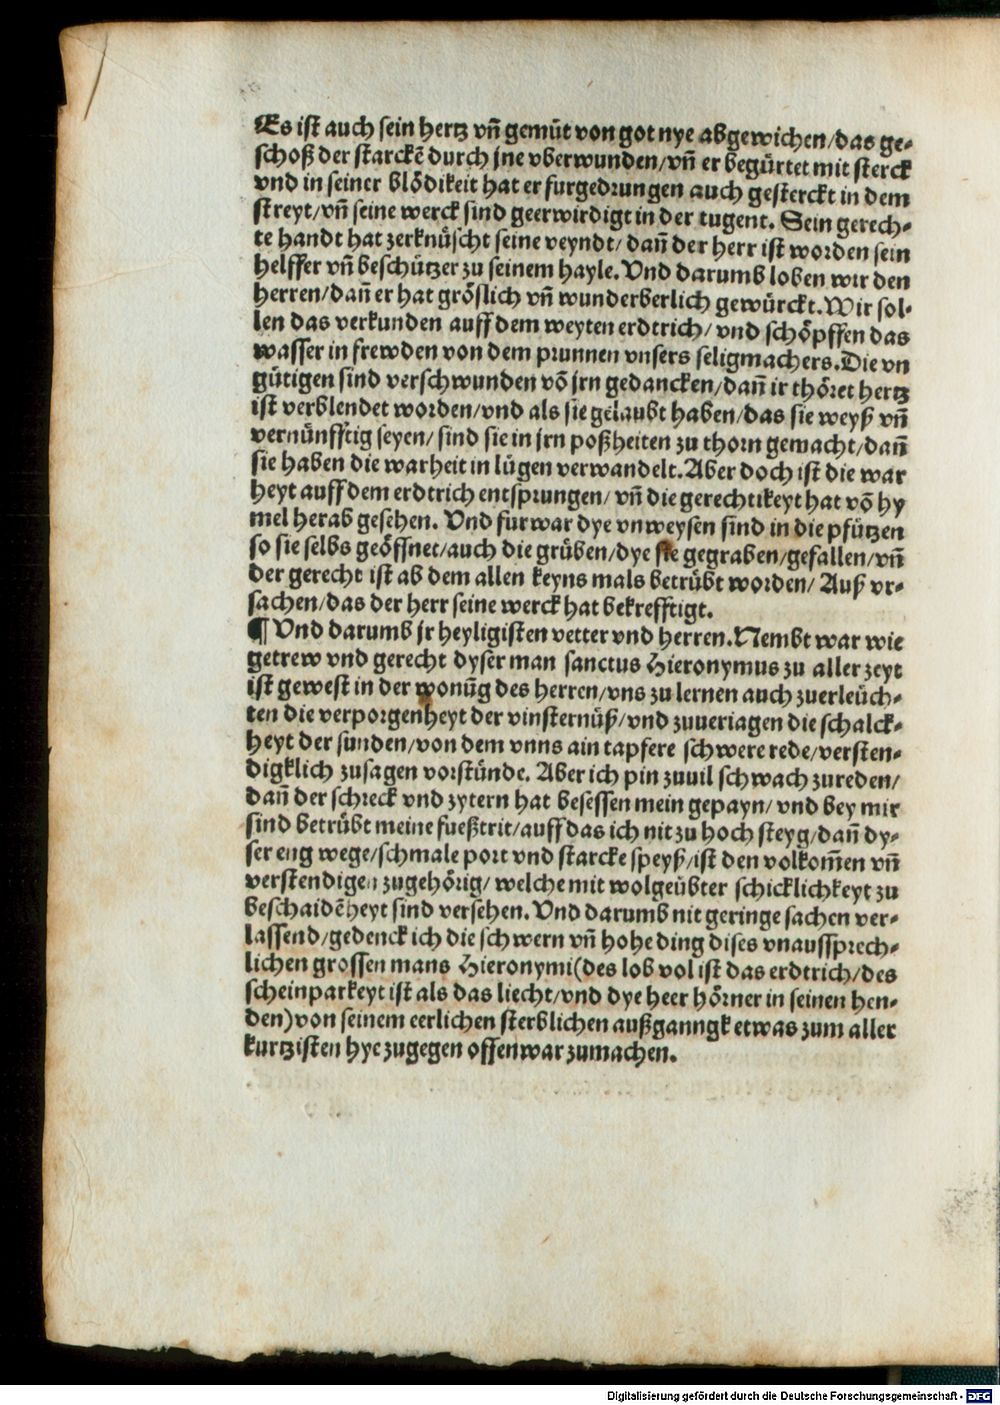 Es ist auch sein hertz vñ gemüt von got nye abgewichen/das ge-
schoß der starckē durch jne vberwunden/vñ er begürtet mit sterck
vnd in seiner blödikeit hat er furgedrungen auch gesterckt in dem
streyt/vñ seine werck sind geerwirdigt in der tugent. Sein gerech-
te handt hat zerknüscht seine veyndt/ dañ der herr ist worden sein
helffer vñ beschützer zu seinem hayle. Vnd darumb loben wir den
herren/dañ er hat gröslich vñ wunderberlich gewürckt. Wir sol-
len das verkunden auff dem weyten erdtrich/ vnd schöpffen das
wasser in frewden von dem prunnen vnsers seligmachers. Die vn
gütigen sind verschwunden vō jrn gedancken/dañ ir thöret hertz
ist verblendet worden/vnd als sie gelaubt haben/das sie weyß vñ
vernünfftig seyen/ sind sie in jrn poßheiten zu thorn gemacht/dañ
sie haben die warheit in lügen verwandelt. Aber doch ist die war
heyt auff dem erdtrich entsprungen/ vñ die gerechtikeyt hat vō hy
mel herab gesehen. Vnd furwar dye vnweysen sind in die pfützen
so sie selbs geöffnet/auch die grüben/dye sie gegraben/gefallen/vñ
der gerecht ist ab dem allen keyns mals betrübt worden/ Auß vr-
sachen/das der herr seine werck hat bekrefftigt.
¶ Vnd darumb jr heyligisten vetter vnd herren. Nembt war wie
getrew vnd gerecht dyser man sanctus Hieronymus zu aller zeyt
ist gewest in der wonūg des herren/vns zu lernen auch zuerleüch-
ten die verporgenheyt der vinsternüß/vnd zuueriagen die schalck-
heyt der sunden/von dem vnns ain tapfere schwere rede/versten-
digklich zusagen vorstünde. Aber ich pin zuuil schwach zureden/
dañ der schreck vnd zytern hat besessen mein gepayn/ vnd bey mir
sind betrübt meine fueßtrit/auff das ich nit zu hoch steyg/dañ dy-
ser eng wege/schmale port vnd starcke speyß/ist den volkom̄en vñ
verstendigen zugehörig/ welche mit wolgeübter schicklichkeyt zu
beschaidēheyt sind versehen. Vnd darumb nit geringe sachen ver-
lassend/gedenck ich die schwern vñ hohe ding dises vnaussprech-
lichen grossen mans Hieronymi(des lob vol ist das erdtrich/des
scheinparkeyt ist als das liecht/vnd dye heer hörner in seinen hen-
den)von seinem eerlichen sterblichen außganngk etwas zum aller
kurtzisten hye zugegen offenwar zumachen.
Digitalisierung gefördert durch die Deutsche Forschungsgemeinschaft - DFG